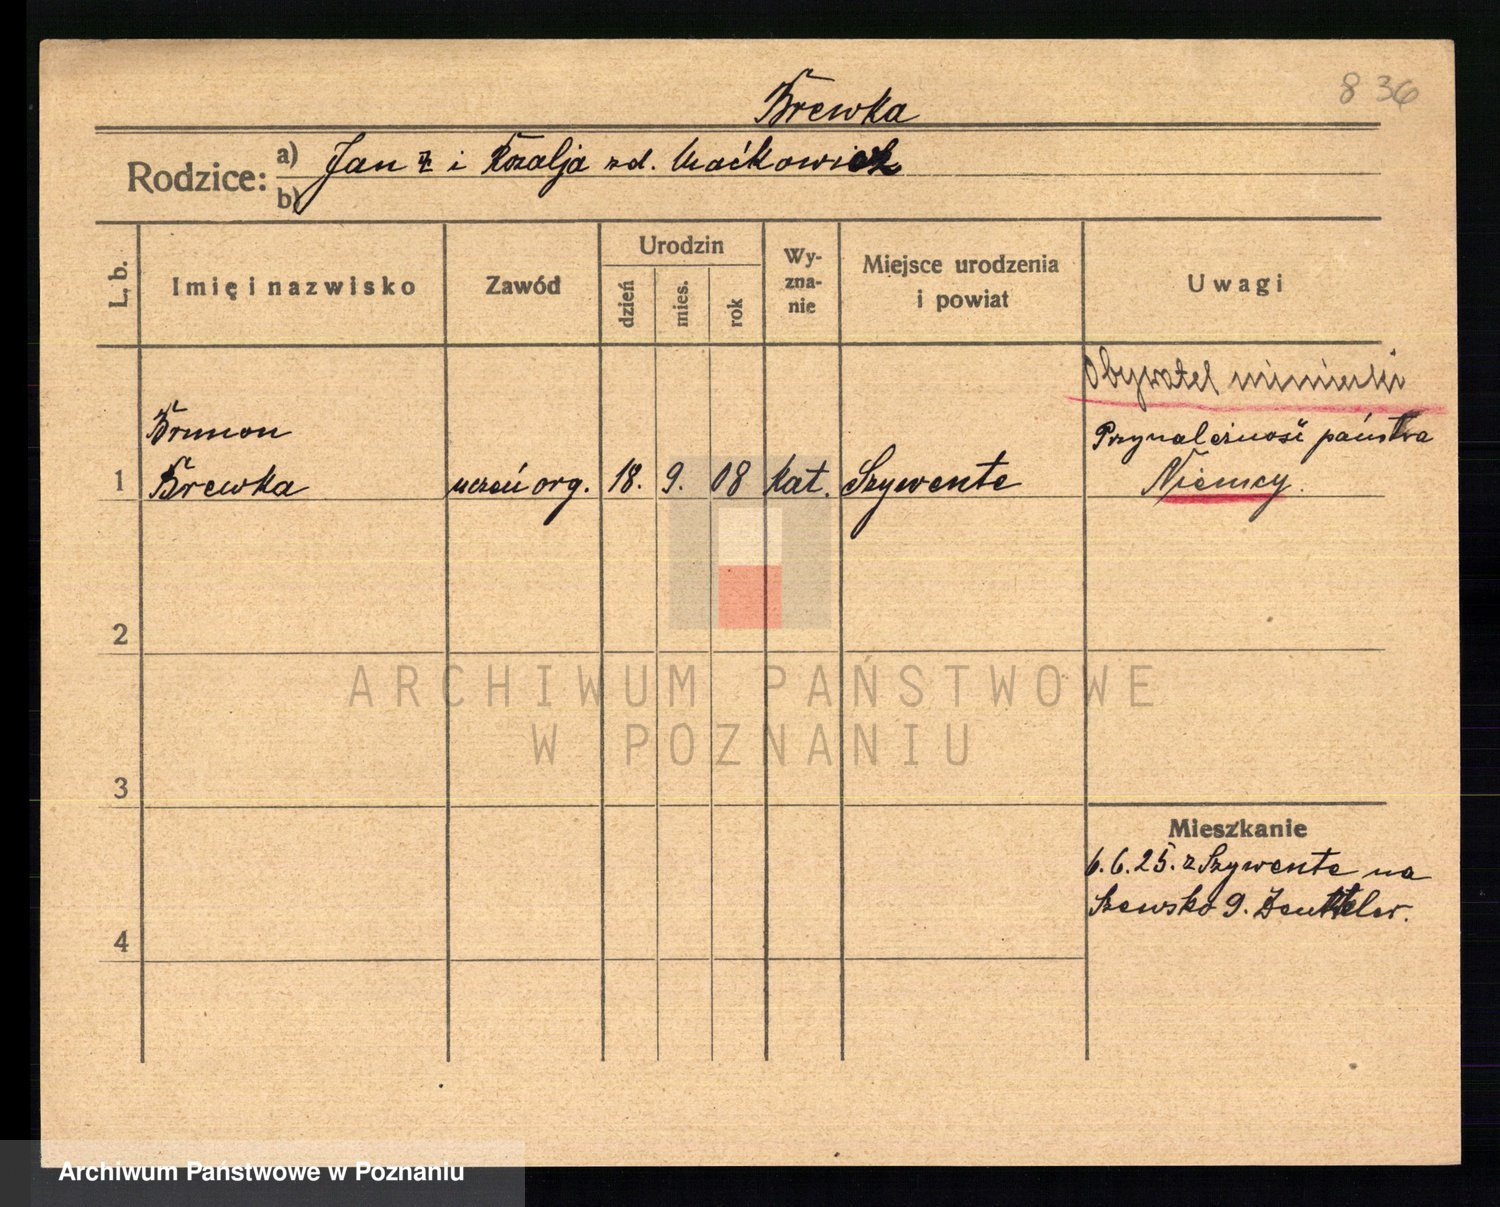 836
Brewka
Rodzice:
a) Jan i Rozalja zd. Maćkowiak
b)
L. b.
Imię i nazwisko
Zawód
Urodzin
dzień
mies.
rok
Wy-
zna-
nie
Miejsce urodzenia
i powiat
Uwagi
Obywatel niemiecki
Brunon
Przynależność państwa
1 Brewka uczeń org. 18. 9. 08 kat. Szywente Niemcy.
2
ARCHIWUM PAŃSTWOWE
W POZNANIU
3
Mieszkanie
6.6.25. z Szywente na
Szewska 9.
4
Archiwum Państwowe w Poznaniu